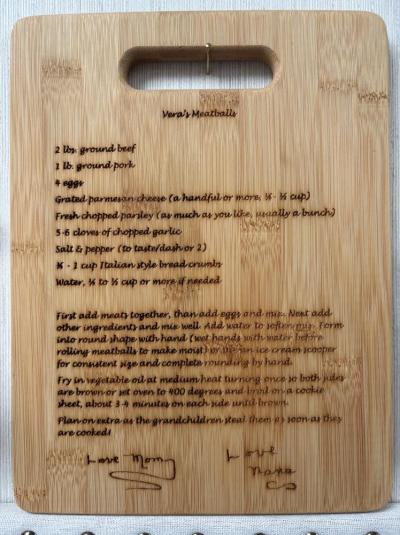 Vera's Meatballs
2 lbs. ground beef
1 lb. ground pork
4 eggs
Grated parmesan cheese (a handful or more, - cup)
Fresh chopped parsley (as much as you like, usually a bunch)
5-6 cloves of chopped garlic
Salt & pepper (to taste/dash or 2)
- 1 cup Italian style bread crumbs
Water, to cup or more if needed
First add meats together, than add eggs and mix. Next add
other ingredients and mix well. Add water to soften mix. Form
into round shape with hand (wet hands with water before
rolling meatballs to make moist) or use an ice cream scooper
for consistent size and complete rounding by hand.
Fry in vegetable oil at medium heat turning once so both sides
are brown or set oven to 400 degrees and broil on a cookie
sheet, about 3-4 minutes on each side until brown.
Plan on extra as the grandchildren steal them as soon as they
are cooked!
Love Mom
Love
Nana